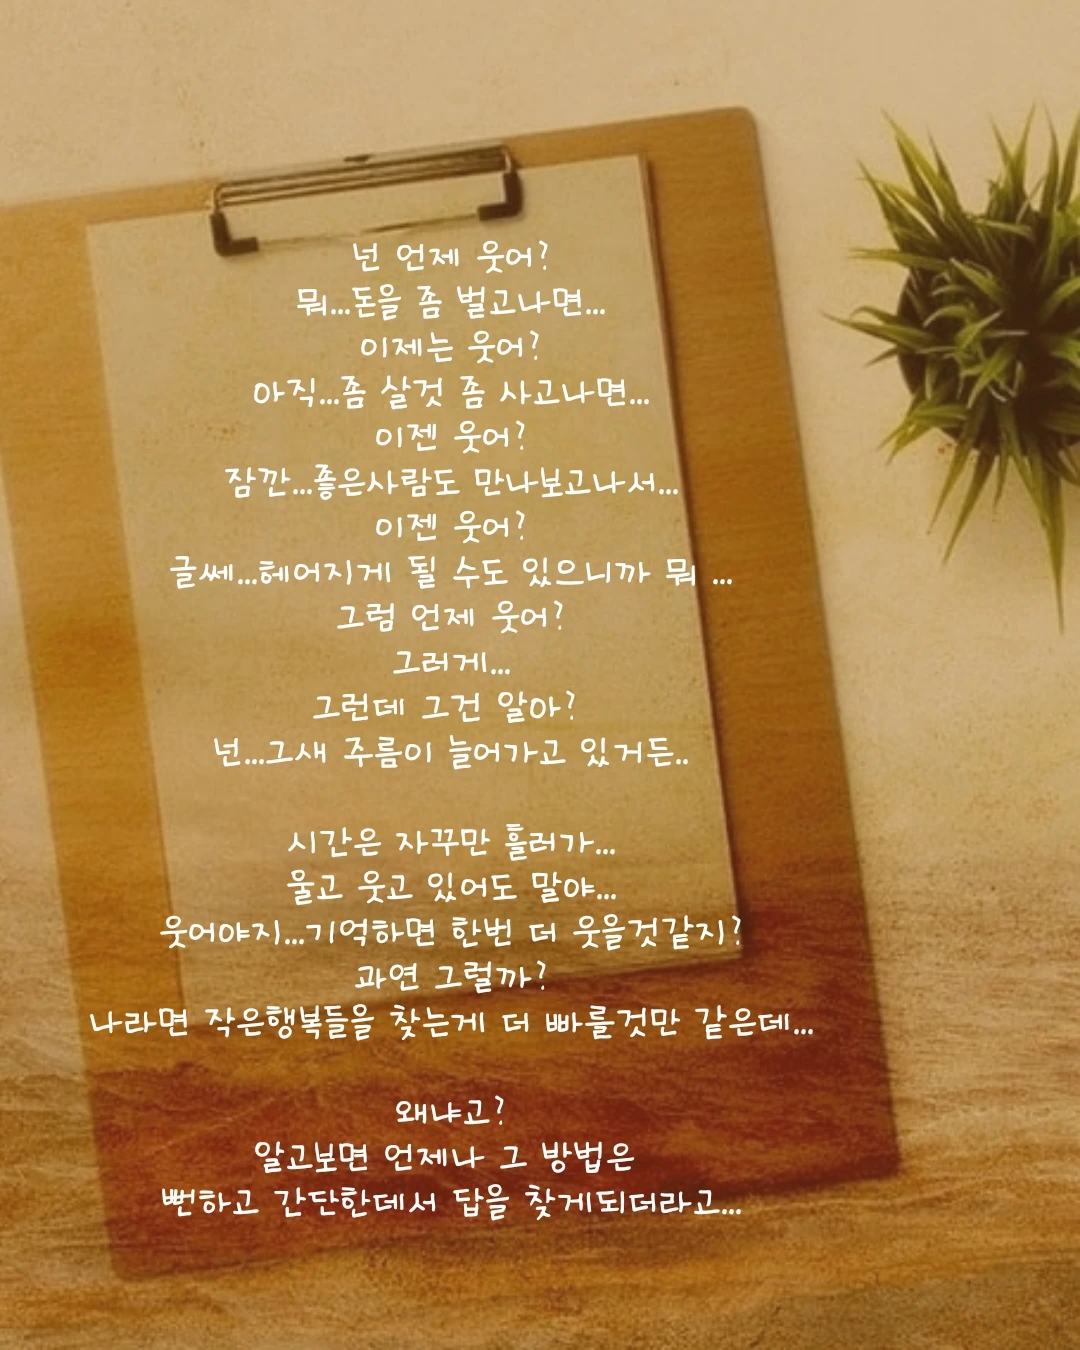 넌 언제 웃어?
뭐...돈을 좀 벌고나면...
이제는 웃어?
아직...좀 살것 좀 사고나면...
이젠 웃어?
잠깐...좋은사람도 만나보고나서...
이젠 웃어?
글쎄...헤어지게 될 수도 있으니까 뭐 ...
그럼 언제 웃어?
그러게...
그런데 그건 알아?
넌...그새 주름이 늘어가고 있거든..
시간은 자꾸만 흘러가...
울고 웃고 있어도 말야...
웃어야지...기억하면 한번 더 웃을것같지?
과연 그럴까?
나라면 작은행복들을 찾는게 더 빠를것만 같은데...
왜냐고?
알고보면 언제나 그 방법은
뻔하고 간단한데서 답을 찾게되더라고...